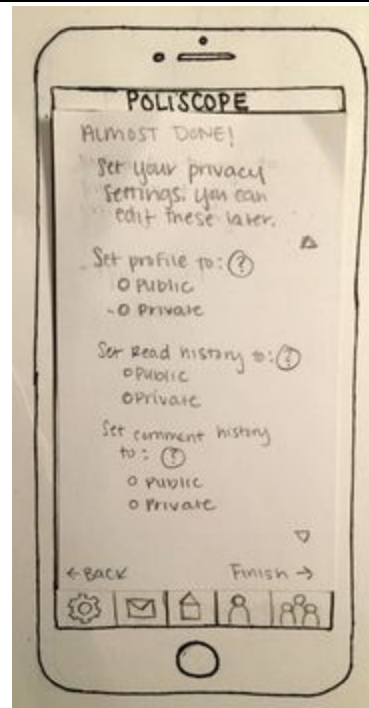 POLISCOPE
ALMOST DONE!
Set your privacy
settings. You can
edit these later.
Set profile to: ?
Public
Private
Set Read history to: ?
Public
Private
Set comment history
to: ?
Public
Private
← Back Finish →